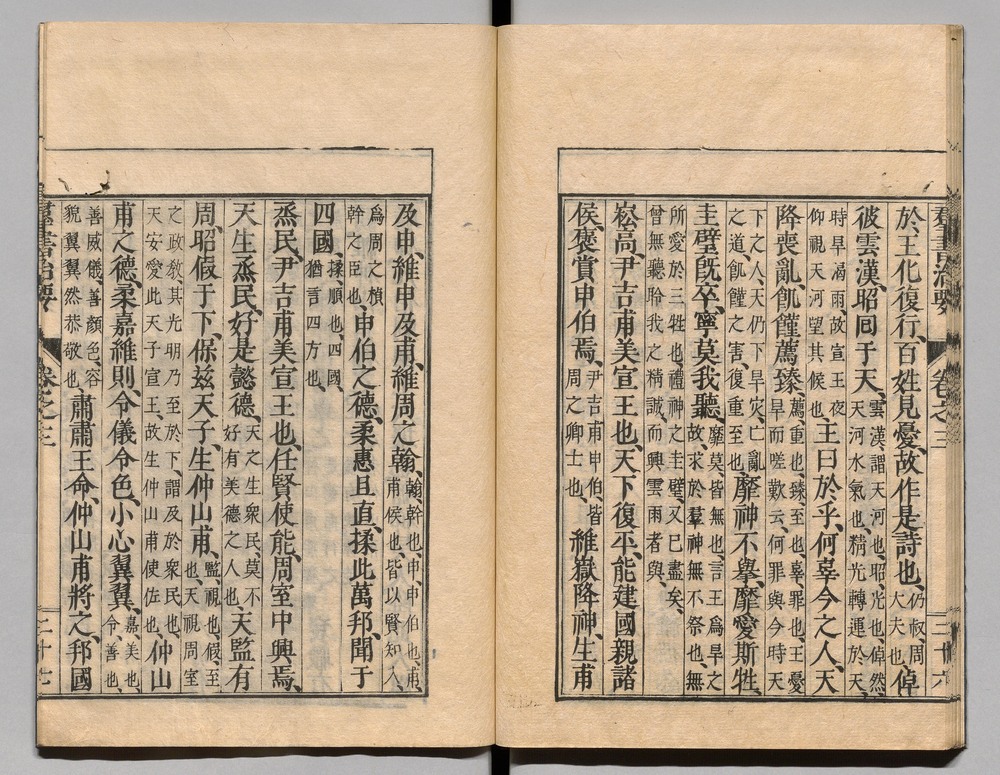 羣書治要 卷之三 二十六
於、王化復行、百姓見憂、故作是詩也、仍叔、周大夫也、倬
彼雲漢、昭囘于天、雲漢、謂天河也、昭、光也、倬然天河水氣也、精光轉運於天、
時旱渴雨、故宣王夜仰視天河望其候也、王曰於乎、何辜今之人、天
降喪亂、飢饉薦臻、薦、重也、臻、至也、辜、罪也、王憂旱而嗟歎云、何罪與今時天
下之人、天仍下旱灾、亡亂之道、飢饉之害、復重至也、靡神不擧、靡愛斯牲、
圭璧旣卒、寧莫我聽、靡莫、皆無也、言王爲旱之故、求於羣神無不祭也、無
所愛於三牲也、禮神之圭璧、又已盡矣、曾無聽聆我之精誠、而興雲雨者與、
崧高、尹吉甫美宣王也、天下復平、能建國親諸
侯、褒賞申伯焉、尹吉甫申伯、皆周之卿士也、維嶽降神、生甫
及申、維申及甫、維周之翰、翰、幹也、申、申伯也、甫、甫侯也、皆以賢知入、
爲周之楨幹之臣也、申伯之德、柔惠且直、揉此萬邦、聞于
四國、揉、順也、四國、猶言四方也、
烝民、尹吉甫美宣王也、任賢使能、周室中興焉、
天生烝民、好是懿德、天之生衆民、莫不好有美德之人也、天監有
周、昭假于下、保兹天子、生仲山甫、監、視也、假、至也、天視周室
之政敎、其光明乃至於下、謂及於衆民也、天安愛此天子宣王、故生仲山甫使佐也、仲山
甫之德、柔嘉維則、令儀令色、小心翼翼、嘉、美也、令、善也、
善威儀、善顏色、容貌翼翼然恭敬也、肅肅王命、仲山甫將之、邦國
羣書治要 卷之三 二十七